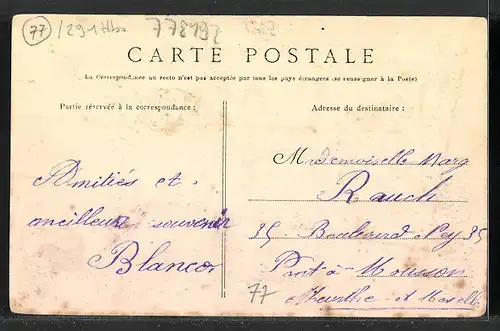 77 /291 Hbs 778192
CARTE POSTALE
(La Correspondance au recto n'est pas acceptée par tous les pays étrangers (se renseigner à la Poste)
Partie réservée à la correspondance :
Adresse du destinataire :
Mademoiselle Marg
Rauch
35 Boulevard Ney 35
Pont-à-Mousson
Meurthe-et-Moselle
Amitiés et
meilleurs souvenir
Blancos
77